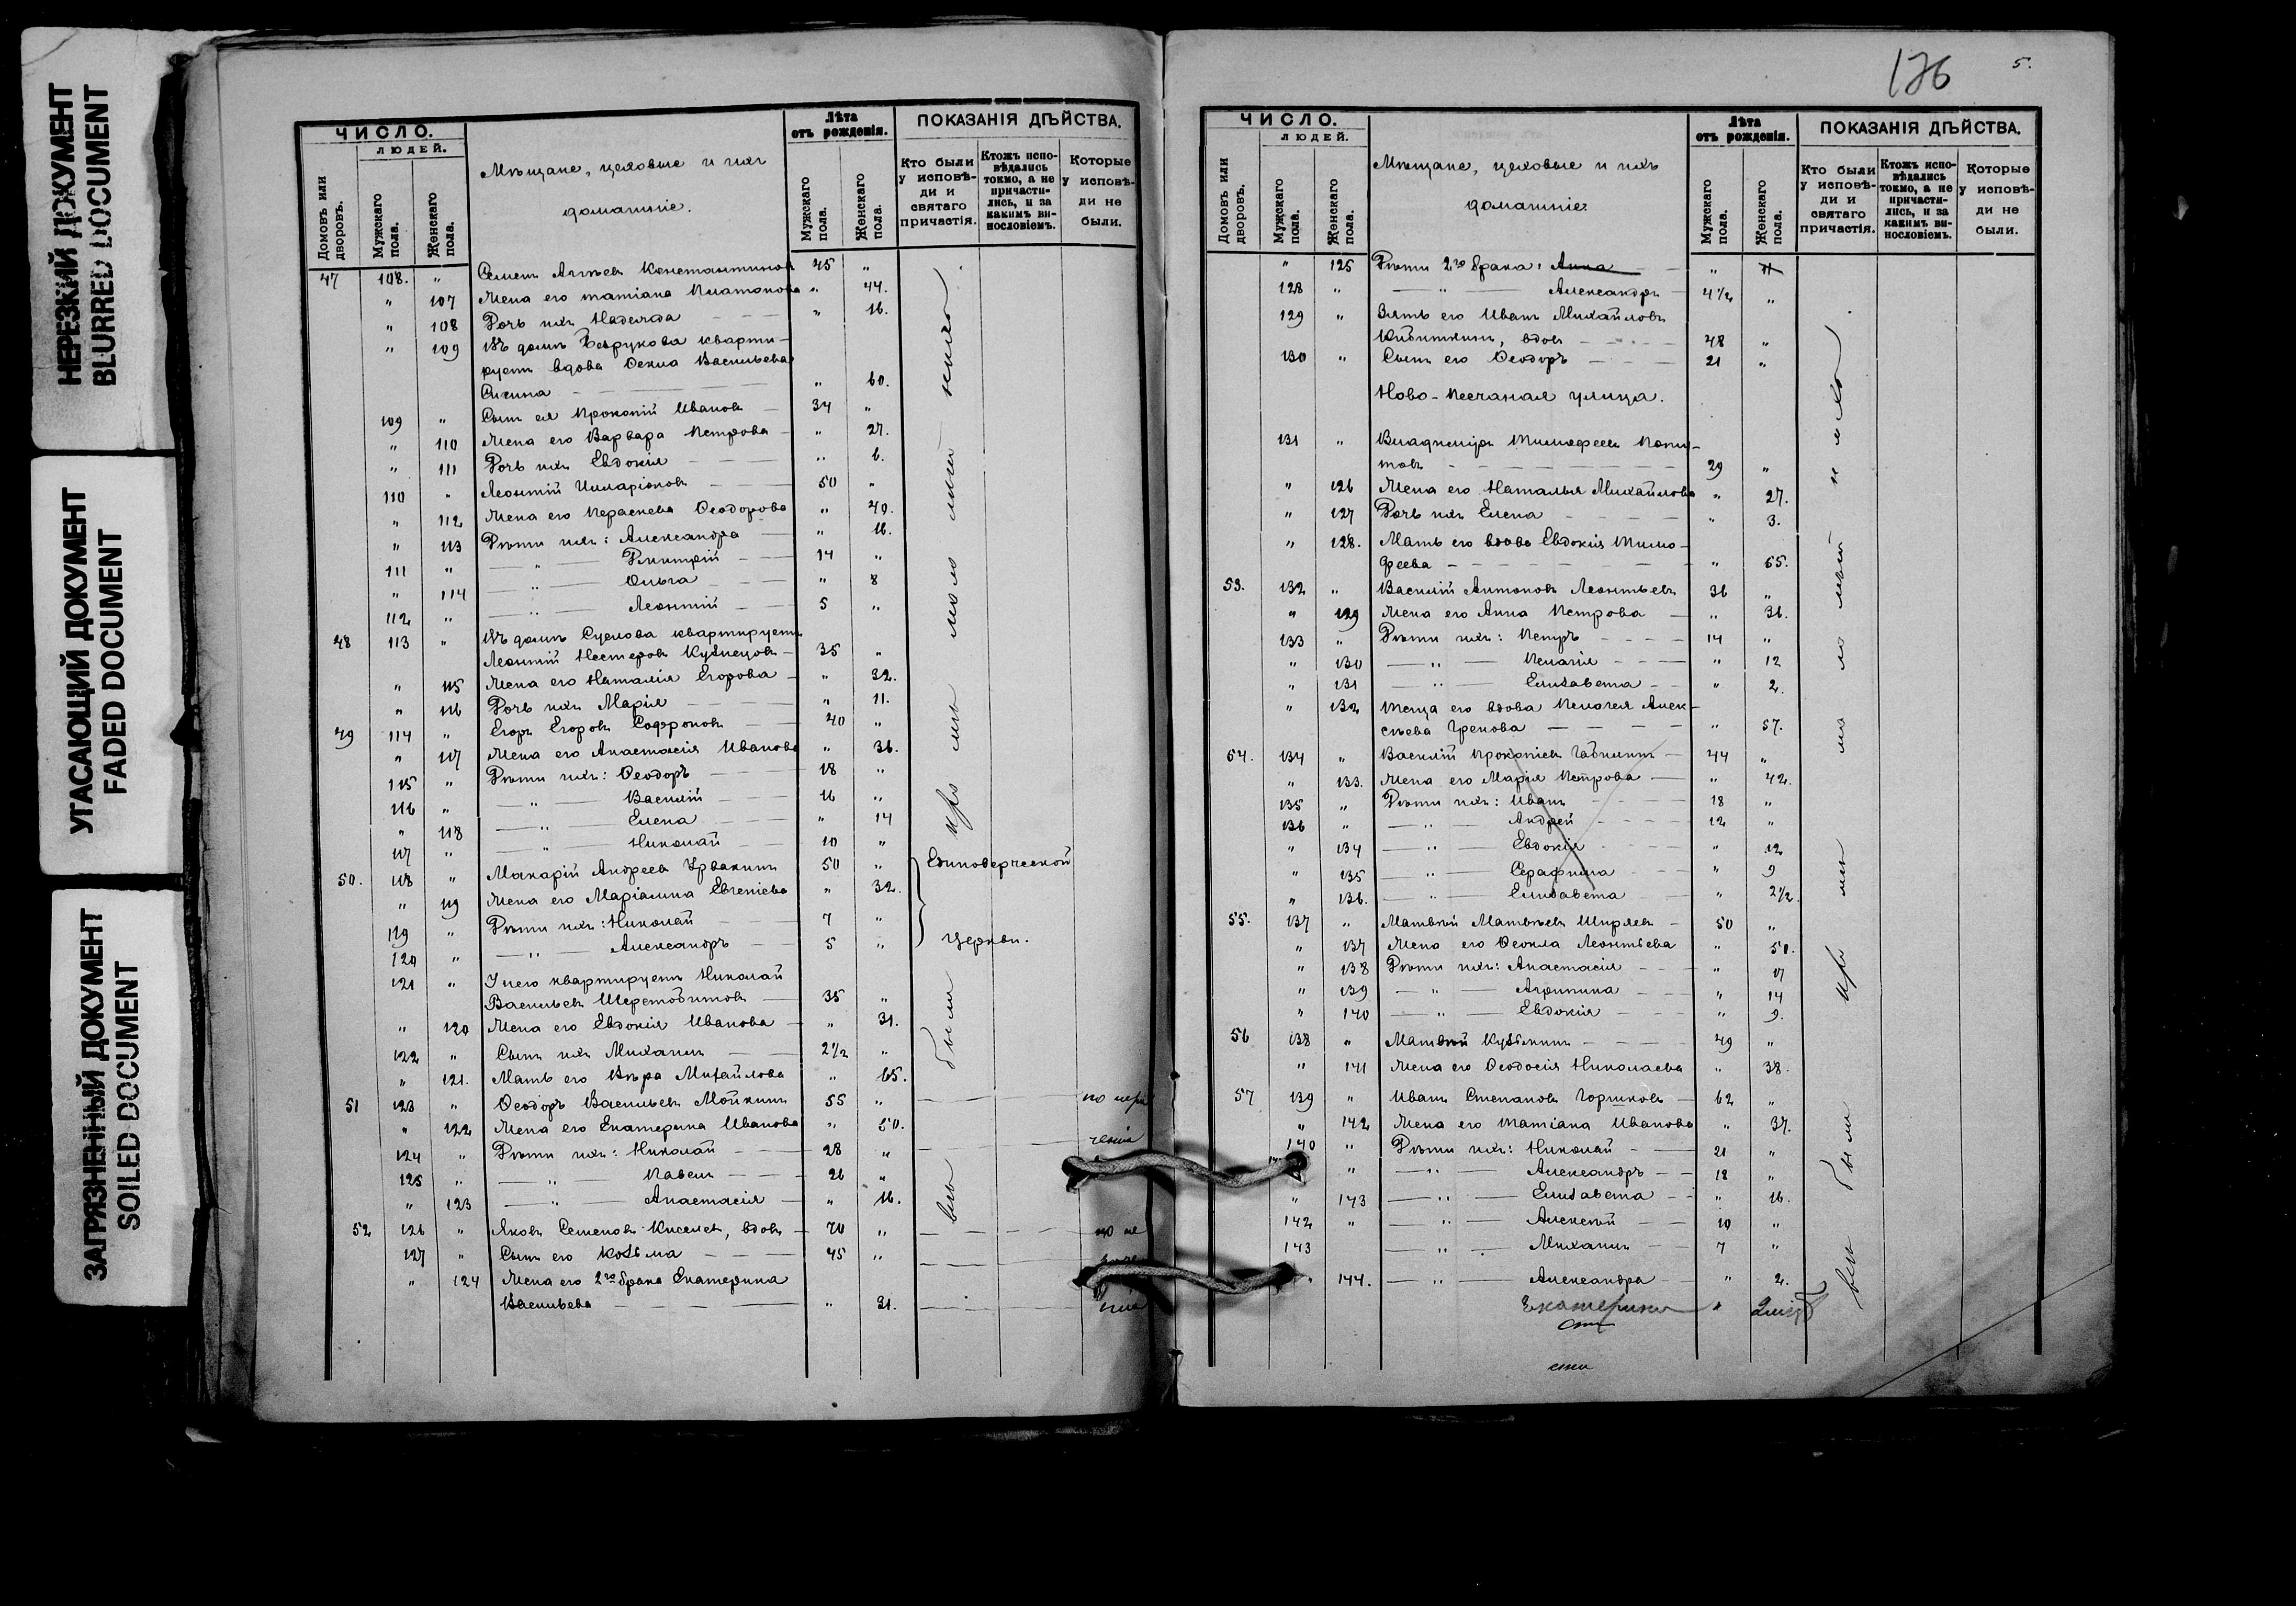 НЕРЕЗКИЙ ДОКУМЕНТ
BLURRED DOCUMENT
УГАСАЮЩИЙ ДОКУМЕНТ
FADED DOCUMENT
ЗАГРЯЗНЕННЫЙ ДОКУМЕНТ
SOILED DOCUMENT
ЧИСЛО.
людей.
Домовъ или дворовъ.
Мужскаго пола.
Женскаго пола.
Мѣщане, цеховые и ихъ
домашніе.
Лѣта
отъ рожденія.
Мужскаго пола.
Женскаго пола.
ПОКАЗАНІЯ ДѢЙСТВА.
Кто были у исповѣди и святаго причастія.
Ктожъ исповѣдались токмо, а не причастились, и за какимъ винословіемъ.
Которые у исповѣди не были.
47 108. " Семенъ Агѣевъ Константиновъ 45 "
" 107 Жена его Татіана Платонова " 44.
" 108 Дочь ихъ Надежда " 16.
" 109 Въ домѣ Безрукова кварти-
руетъ вдова Ѳекла Васильева
" 60.
109 " Сынъ ея Прокопій Ивановъ 34 "
" 110 Жена его Варвара Петрова " 27.
" 111 Дочь ихъ Евдокія " 6.
110 " Леонтій Иларіоновъ 50 "
" 112 Жена его Параскева Ѳеодорова " 40.
" 113 Дѣти ихъ: Александра " 16.
111 " — " — Димитрій 14 "
" 114 — " — Ольга " 8
112 " — " — Леонтій 5 "
48 113 " Въ домѣ Суслова квартируетъ
Леонтій Нестеровъ Кузнецовъ 35 "
" 115 Жена его Наталія Егорова " 32.
" 116 Дочь ихъ Марія " 11.
49 114 " Егоръ Егоровъ Софроновъ 40 "
" 117 Жена его Анастасія Иванова " 36.
115 " Дѣти ихъ: Ѳеодоръ 18 "
116 " — " — Василій 16 "
" 118 — " — Елена " 14
117 " — " — Николай 10 "
50. 118 " Макарій Андреевъ 50 " Единоверческой
" 119 Жена его Маріамна Евгеніева " 32.
119 " Дѣти ихъ: Николай 7 "
120 " — " — Александръ 5 " Церкви.
121 " У него квартируетъ Николай
Васильевъ Шерстобитовъ 35 "
" 120 Жена его Евдокія Иванова " 31.
122 " Сынъ ихъ Михаилъ 2½ "
" 121. Мать его Вѣра Михайлова " 65.
51 123 " Ѳеодоръ Васильевъ Мойкинъ 55 "
" 122 Жена его Екатерина Иванова " 50.
124 " Дѣти ихъ: Николай 28 "
125 " — " — Павелъ 26 "
" 123 — " — Анастасія " 16.
52 126 " Яковъ Семеновъ Киселевъ, вдовъ 70 "
127 " Сынъ его Козьма 45 "
" 124 Жена его 2го брака Екатерина
Васильева " 31.
176
5.
ЧИСЛО.
людей.
Домовъ или дворовъ.
Мужскаго пола.
Женскаго пола.
Мѣщане, цеховые и ихъ
домашніе
Лѣта
отъ рожденія.
Мужскаго пола.
Женскаго пола.
ПОКАЗАНІЯ ДѢЙСТВА.
Кто были у исповѣди и святаго причастія.
Ктожъ исповѣдались токмо, а не причастились, и за какимъ винословіемъ.
Которые у исповѣди не были.
" 125 Дѣти 2го брака: Анна " 11
128 " — " — Александръ 4½ "
129 " Зять его Иванъ Михайловъ
Кибиткинъ, вдовъ 48 "
130 " Сынъ его Ѳеодоръ 21 "
Ново-Песчаная улица.
131 " Владиміръ Тимофеевъ Копы-
товъ 29 "
" 126 Жена его Наталья Михайлова " 27.
" 127 Дочь ихъ Елена " 3.
" 128. Мать его вдова Евдокія Тимо-
феева " 55.
53. 132 " Василій Антоновъ Леонтьевъ 36 "
" 129 Жена его Анна Петрова " 36.
133 " Дѣти ихъ: Петръ 14 "
" 130 — " — Пелагія " 12
" 131 — " — Елизавета " 2.
" 132 Теща его вдова Пелагея Алек-
сѣева Грекова " 57.
54. 134 " Василій Прокопіевъ 44 "
" 133. Жена его Марія Петрова " 42.
135 " Дѣти ихъ: Иванъ 18 "
136 " — " — Андрей 12 "
" 134 — " — Евдокія " 12
" 135 — " — Серафима " 9
" 136. — " — Елизавета " 2½.
55. 137 " Матвѣй Матвѣевъ Ширяевъ 50 "
" 137 Жена его Ѳеокла Леонтьева " 50.
" 138 Дѣти ихъ: Анастасія " 17
" 139 — " — Агрипина " 14
" 140 — " — Евдокія " 9.
56 138 " Матвѣй Кузькинъ 49 "
" 141 Жена его Ѳеодосія Николаева " 38.
57 139 " Иванъ Степановъ Горшковъ 62 "
" 142 Жена его Татіана Иванова " 37.
140 " Дѣти ихъ: Николай 21 "
" — " — Александръ 18 "
" 143 — " — Елизавета " 16.
142 " — " — Алексѣй 10 "
143 — " — Михаилъ 7 "
" 144. — " — Александра " 2.
Екатерина "